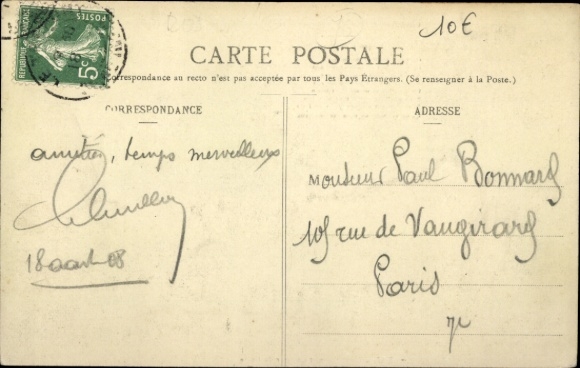 10€
RÉPUBLIQUE FRANÇAISE
POSTES
5c
CARTE POSTALE
correspondance au recto n'est pas acceptée par tous les Pays Étrangers. (Se renseigner à la Poste.)
CORRESPONDANCE
amitiés, temps merveilleux
18 août 08
ADRESSE
Monsieur Paul Bonnard
105 rue de Vaugirard
Paris